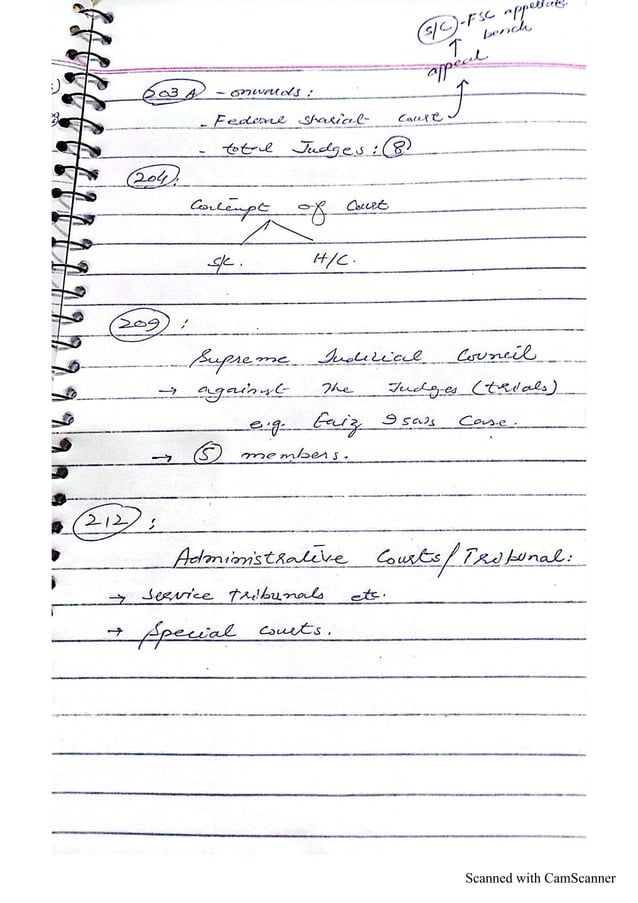 S/C - FSC appellate
bench
appeal
203 A - onwards:
- Federal Shariat Court
- total Judges: 8
204:
Contempt of Court
S/C. H/C.
209:
Supreme Judicial Council
→ against the Judges (trials)
e.g. Faiz Isa's Case.
→ 5 members.
212:
Administrative Courts/Tribunal:
→ Service tribunals etc.
→ Special courts.
Scanned with CamScanner